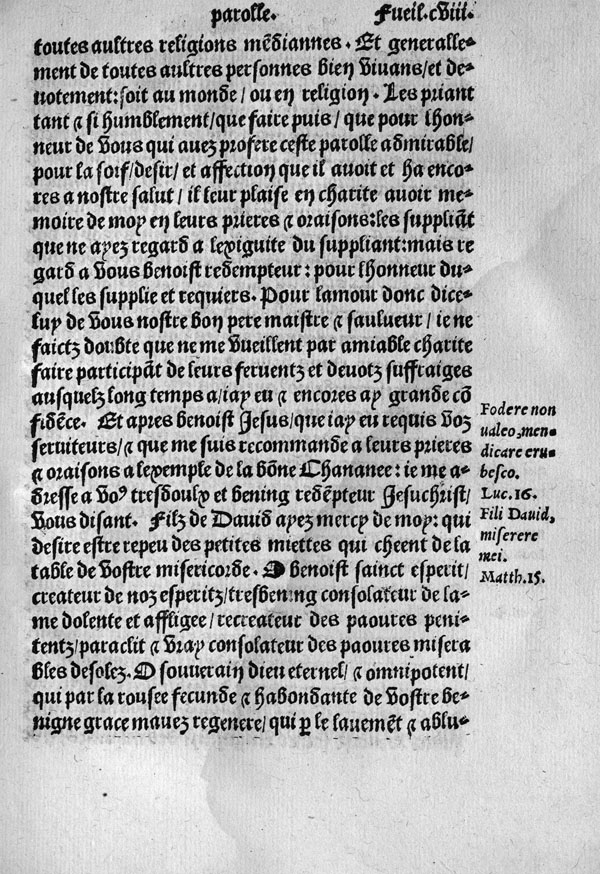 parolle. Fueil.cviii.
toutes aultres religions mēdiannes. Et generalle-
ment de toutes aultres personnes bien vivans/et de-
uotement:soit au monde/ou en religion. Les priant
tant & si humblement/que faire puis/que pour lhon-
neur de vous qui auez profere ceste parolle admirable/
pour la soif/desir/et affection que il avoit et ha enco-
res a nostre salut/il leur plaise en charite avoir me-
moire de moy en leurs prieres & oraisons:les suppliāt
que ne ayez regard a lexiguite du suppliant:mais re
gard a vous benoist redempteur: pour lhonneur du-
quel les supplie et requiers. Pour lamour donc dice-
luy de vous nostre bon pere maistre & saulueur/ie ne
faictz doubte que ne me vueillent par amiable charite
faire participāt de leurs feruentz et deuotz suffraiges
ausquelz long temps a/iay eu & encores ay grande cō
fidēce. Et apres benoist Jesus/que iay eu requis voz
seruiteurs/& que me suis recommande a leurs prieres
& oraisons a lexemple de la bōne Chananee:ie me a-
dresse a voꝰ tresdoulx et bening redēpteur Jesuchrist/
vous disant. Filz de Dauid ayez mercy de moy: qui
desire estre repeu des petites miettes qui cheent de la
table de vostre misericorde. O benoist sainct esperit/
createur de noz esperitz/tresbening consolateur de la-
me dolente et affligee/recreateur des paoures peni-
tentz/paraclit & vray consolateur des paoures misera
bles desolez. O souuerain dieu eternel/& omnipotent/
qui par la rousee fecunde & habondante de vostre be-
nigne grace mauez regenere/qui ꝑ le lauemēt & ablu-
Fodere non
ualeo, men-
dicare eru-
besco.
Luc.16.
Fili Dauid,
miserere
mei.
Matth.15.